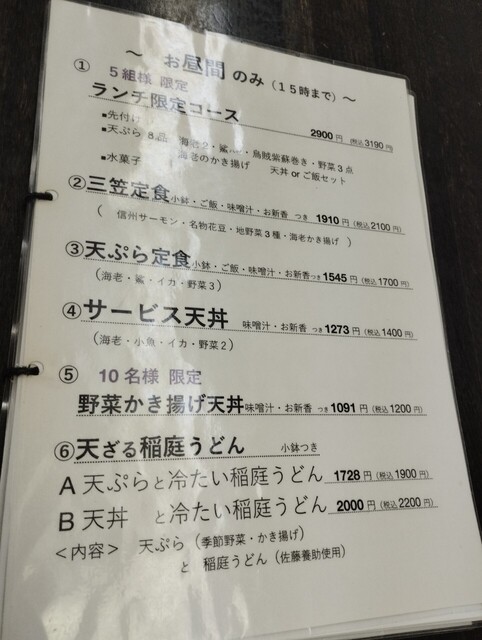 ～ お昼間 のみ（１５時まで）～
① 5組様 限定
ランチ限定コース 2900 円 (税込3190 円)
▪先付け
▪天ぷら 8品 海老２・
・烏賊紫蘇巻き・野菜３点
海老のかき揚げ 天丼 or ご飯セット
▪水菓子
②三笠定食 小鉢・ご飯・味噌汁・お新香 つき 1910 円 (税込 2100 円)
( 信州サーモン・名物花豆・地野菜３種・海老かき揚げ )
③天ぷら定食 小鉢・ご飯・味噌汁・お新香つき 1545 円 (税込 1700 円)
(海老・鯊・イカ・野菜３)
④サービス天丼 味噌汁・お新香 つき 1273 円 (税込 1400 円)
(海老・小魚・イカ・野菜２)
⑤ 10名様 限定
野菜かき揚げ天丼 味噌汁・お新香 つき 1091 円 (税込 1200 円)
⑥天ざる稲庭うどん 小鉢つき
A 天ぷらと冷たい稲庭うどん 1728 円 (税込 1900 円)
B 天丼 と冷たい稲庭うどん 2000 円 (税込 2200 円)
＜内容＞ 天ぷら（季節野菜・かき揚げ）
と 稲庭うどん（佐藤養助使用）